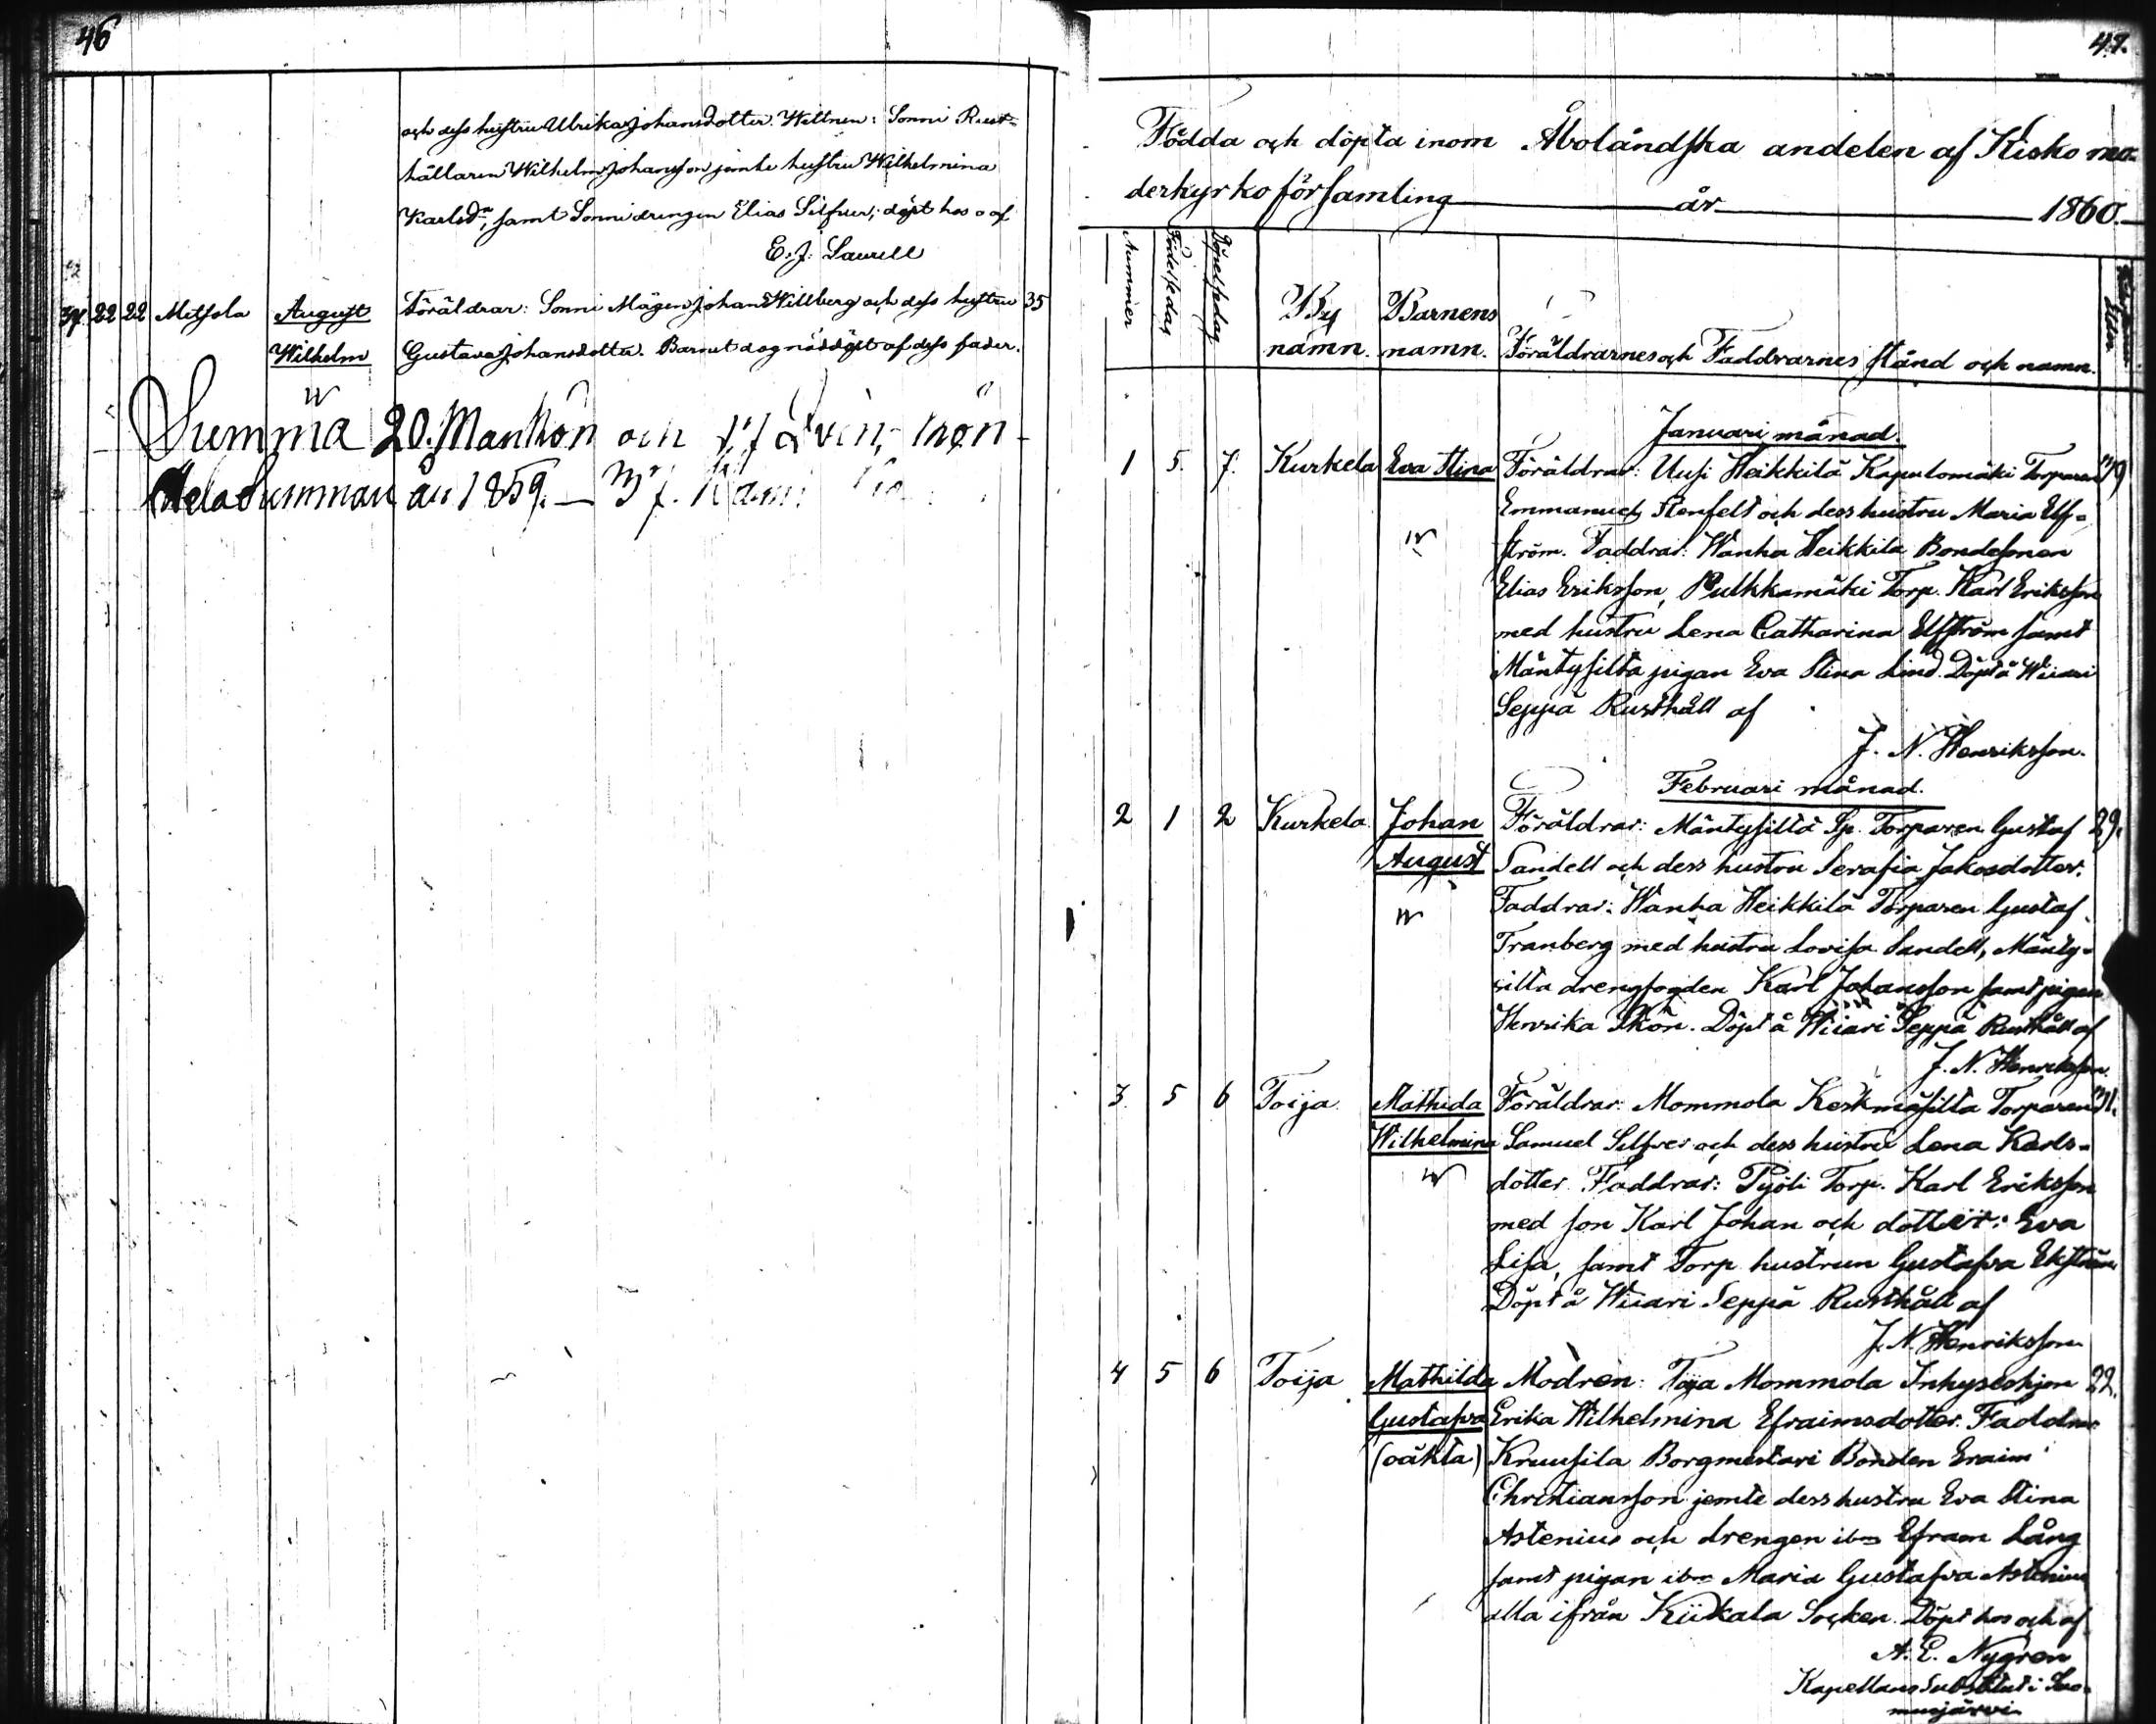 46
och dess hustru Ulrika Johansdotter. Wittnen: Sonni Rust=
hållaren Wilhelm Johansson jemte hustru Wilhelmina
Karlsdr, samt Sonni drengen Elias Silfver; döpt hos o af
E. J. Saurell
37. 22 22 Metsola August Föräldrar: Sonni Mågen Johan Willberg och dess hustru 35
Wilhelm Gustava Johansdotter. Barnet dog nöddöpt af dess fader.
Summa 20. Mankön och 17 Qvin: kön
Hela Summan år 1859. — 37.
47.
Födda och döpta inom Åboländska andelen af Kisko mo=
derkyrkoförsamling år 1860.
Nummer Födelsedag Döpelsedag By namn. Barnens namn. Föräldrarnes och Faddrarnes stånd och namn. ålder
Januari månad.
1 5. 7. Kurkela Eva Stina Föräldrar: Uusi Heikkilä Kapulomäki Torparen 39
Emmanuel Stenfelt och dess hustru Maria Elf=
ström. Faddrar: Wanha Heikkilä Bondesonen
Elias Eriksson, Pulkkamäki Torp. Karl Eriksson
med hustru Lena Catharina Elfström samt
Mäntysilta pigan Eva Stina Lind. Döpt å Wiiari
Seppä Rusthåll af
J. N. Henriksson.
Februari månad.
2 1 2 Kurkela Johan Föräldrar: Mäntysilta Sp. Torparen Gustaf 29.
August Sandell och dess hustru Serafia Jakosdotter.
Faddrar: Wanha Heikkilä Torparen Gustaf
Tranberg med hustru Lovisa Sandell, Mänty=
silta drengfogden Karl Johansson samt pigan
Henrika Skön. Döpt å Wiiari Seppä Rusthåll af
J. N. Henriksson.
3. 5 6 Toija Mathida Föräldrar: Mommola Keskmäsilta Torparen 31.
Wilhelmina Samuel Silfver och dess hustru Lena Karls=
dotter. Faddrar: Pyöli Torp. Karl Eriksson
med son Karl Johan och dotter: Eva
Lisa, samt Torp. hustrun Gustafva Ekström
Döpt å Wiiari Seppä Rusthåll af
J. N. Henriksson
4 5 6 Toija Mathilda Modren: Toija Mommola Inhyseshjon 22.
Gustafva Erika Wilhelmina Efraimsdotter. Faddrar
(oäkta) Kruusila Borgmestari Bonden Eraim
Christiansson jemte dess hustru Eva Stina
Astenius och drengen ibm Efraim Lång
samt pigan ibm Maria Gustafva Astenius
alla ifrån Kiikala Socken. Döpt hos och af
A. E. Nygren
Kapellans Substitut i Suo=
musjärvi